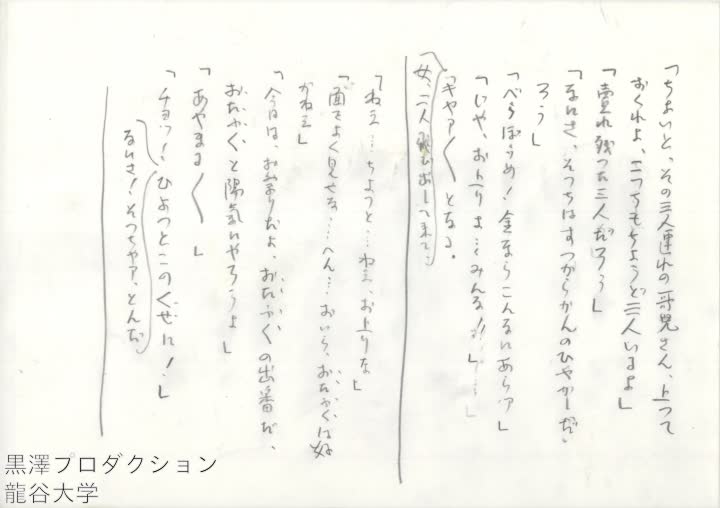 「ちよいと、その三人連れの哥兄さん、上って
おくれよ、こつちもちようど三人いるよ」
「売れ残った三人だろう」
「なにさ、そつちはすつからかんのひやかしだ
ろう」
「べらぼうめ!金ならこんなにあらァ」
「じや、お上りよ…みんな!!」
「キヤア〱となる。
「女、二人飛び出して来て、
「ねえ…ちよつと…ねえ、お上りな」
「面をよく見せな…へん…おいら、おたふくは好
かねえ」
「今日は、お祭りだよ、おたふくの出番だ、
おたふくと陽気にやろうよ」
「あやまる〱」
「チョッ!ひよつとこのくせに!」
なにさ!そつちやア、とんだ
黒澤プロダクション
龍谷大学